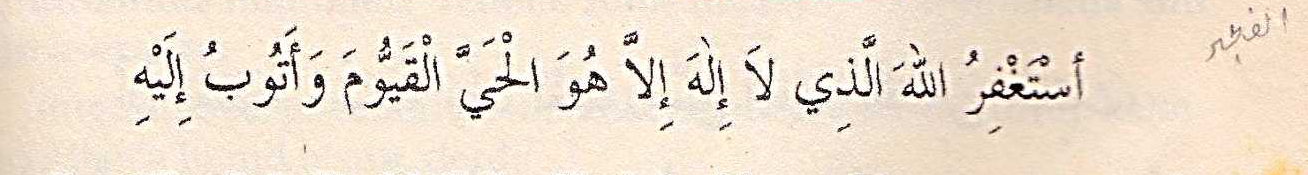 أسْتَغْفِرُ اللهَ الَّذِي لاَ إِلٰهَ إِلاَّ هُوَ الْحَيَّ الْقَيُّومَ وَأَتُوبُ إِلَيْهِ